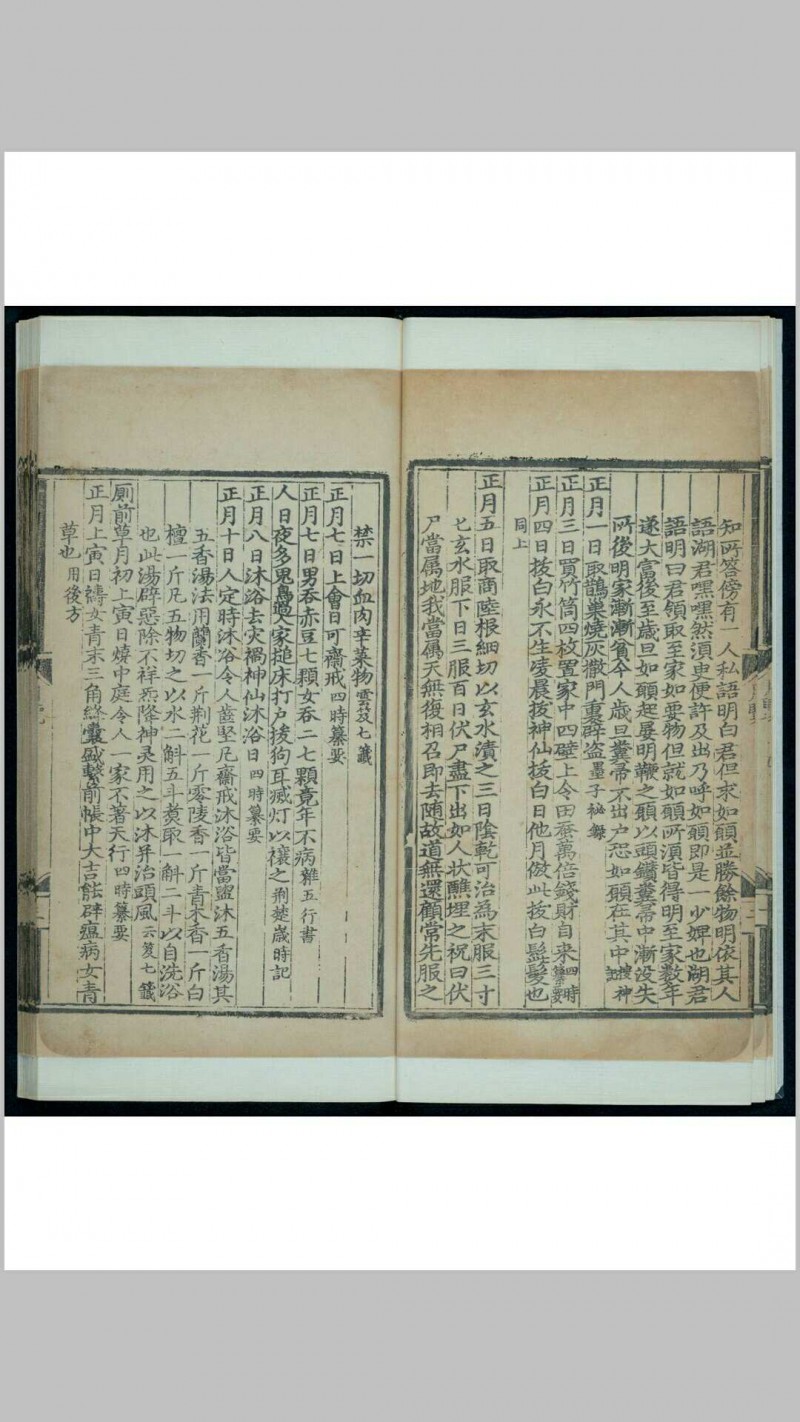 知所答傍有一人私語明白君但求如願並勝餘物明依其人
語湖君嘿嘿然須叟便許及出乃呼如願即是一少婢也湖君
語明曰君領取至家如要物但就如願所須皆得明至家数年
遂大富後至歲旦如願起晏明鞭之願以頭鑽糞帚中漸没失
所後明家漸漸貧今人歲旦糞帚不出户恐如願在其中搜神記
正月一日取鵲巢燒灰撒門裏辟盗墨子秘錄
正月三日買竹筒四枚置家中四壁上令田蚕萬倍錢財自来四時纂要
正月四日拔白永不生凌晨拔神仙拔白日他月倣此拔白髭髮也
同上
正月五日取商陸根細切以玄水漬之三日陰乾可治為末服三寸
匕玄水服下日三服百日伏尸盡下出如人状醮埋之祝曰伏
尸當属地我當属天無復相召即去随故道無還顧常先服之
禁一切血肉辛菜物雲笈七籤
正月七日上會日可齋戒四時纂要
正月七日男吞赤豆七顆女吞二七顆竟年不病雜五行書
人日夜多鬼鳥過人家搥床打户捩狗耳滅灯以禳之荆楚歳時記
正月八日沐浴去灾禍神仙沐浴日四時纂要
正月十日人定時沐浴令人齒堅凡齋戒沐浴皆當盥沐五香湯其
五香湯法用蘭香一斤荆花一斤零陵香一斤青木香一斤白
檀一斤凡五物切之以水二斛五斗煑取一斛二斗以自洗浴
也此湯辟惡除不祥炁降神灵用之以沐并治頭風云笈七籤
厠前草月初上寅日燒中庭令人一家不著天行四時纂要
正月上寅日擣女青末三角絳囊盛繫前帳中大吉能辟瘟病女青
草也用後方